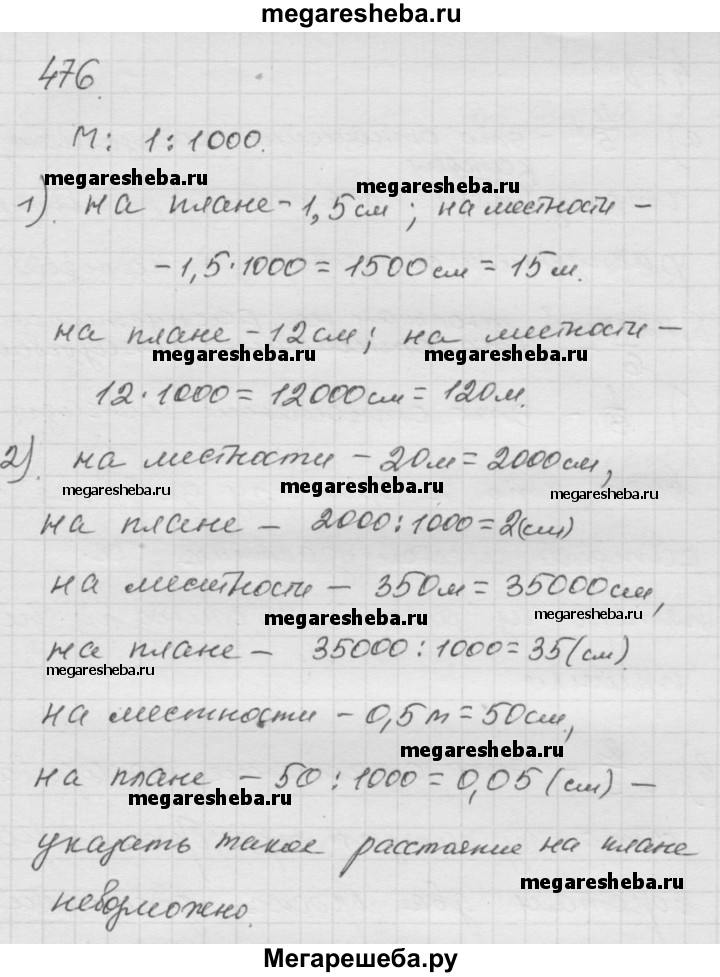 megaresheba.ru
476.
М: 1:1000.
megaresheba.ru
megaresheba.ru
1). на плане - 1,5 см; на местности -
- 1,5·1000 = 1500 см = 15 м.
на плане - 12 см; на местности -
megaresheba.ru megaresheba.ru
12·1000 = 12000 см = 120 м.
2). на местности - 20 м = 2000 см,
megaresheba.ru megaresheba.ru megaresheba.ru
на плане - 2000:1000 = 2 (см)
на местности - 350 м = 35000 см,
megaresheba.ru megaresheba.ru
на плане - 35000:1000 = 35 (см)
megaresheba.ru
на местности - 0,5 м = 50 см,
megaresheba.ru
на плане - 50:1000 = 0,05 (см) -
megaresheba.ru
указать такое расстояние на плане
megaresheba.ru
невозможно.
Мегарешеба.ру